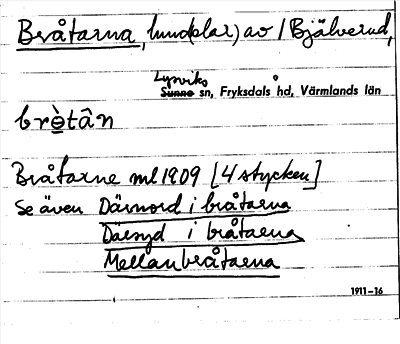 Bråtarna, hmd(elar) av / Bjälverud,
Lysviks
Sunne sn, Fryksdals hd, Värmlands län
brètân
Bråtarne ml 1909 [4 stycken]
Se även Därnord i bråtarna
Därsyd i bråtarna
Mellanbråtarna
1911–16